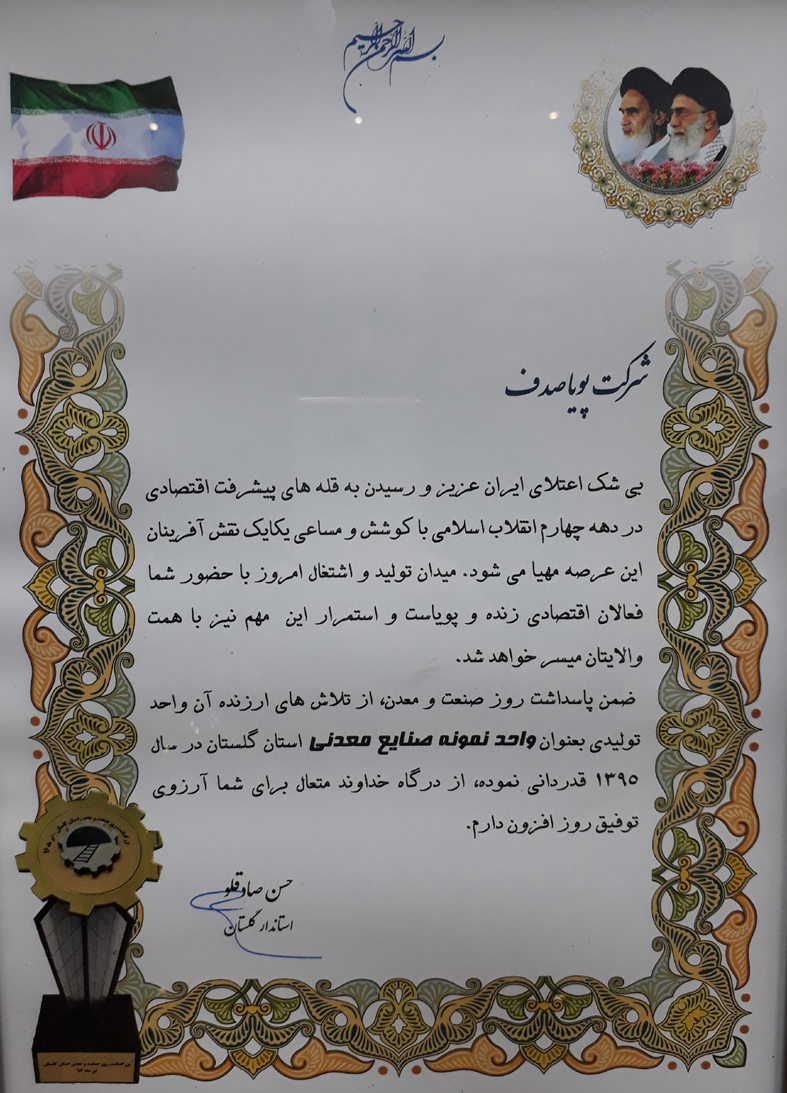 بسم الله الرحمن الرحیم
شرکت پویا صدف
بی شک اعتلای ایران عزیز و رسیدن به قله های پیشرفت اقتصادی
در دهه چهارم انقلاب اسلامی با کوشش و مساعی یکایک نقش آفرینان
این عرصه مهیا می شود. میدان تولید و اشتغال امروز با حضور شما
فعالان اقتصادی زنده و پویاست و استمرار این مهم نیز با همت
والایتان میسر خواهد شد.
ضمن پاسداشت روز صنعت و معدن، از تلاش های ارزنده آن واحد
تولیدی بعنوان واحد نمونه صنایع معدنی استان گلستان در سال
۱۳۹۵ قدردانی نموده، از درگاه خداوند متعال برای شما آرزوی
توفیق روز افزون دارم.
حسن صادقلو
استاندار گلستان
بزرگداشت روز صنعت و معدن استان گلستان